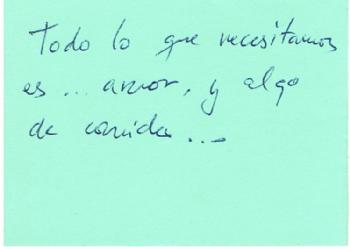 Todo lo que necesitamos
es ... amor, y algo
de comida ...